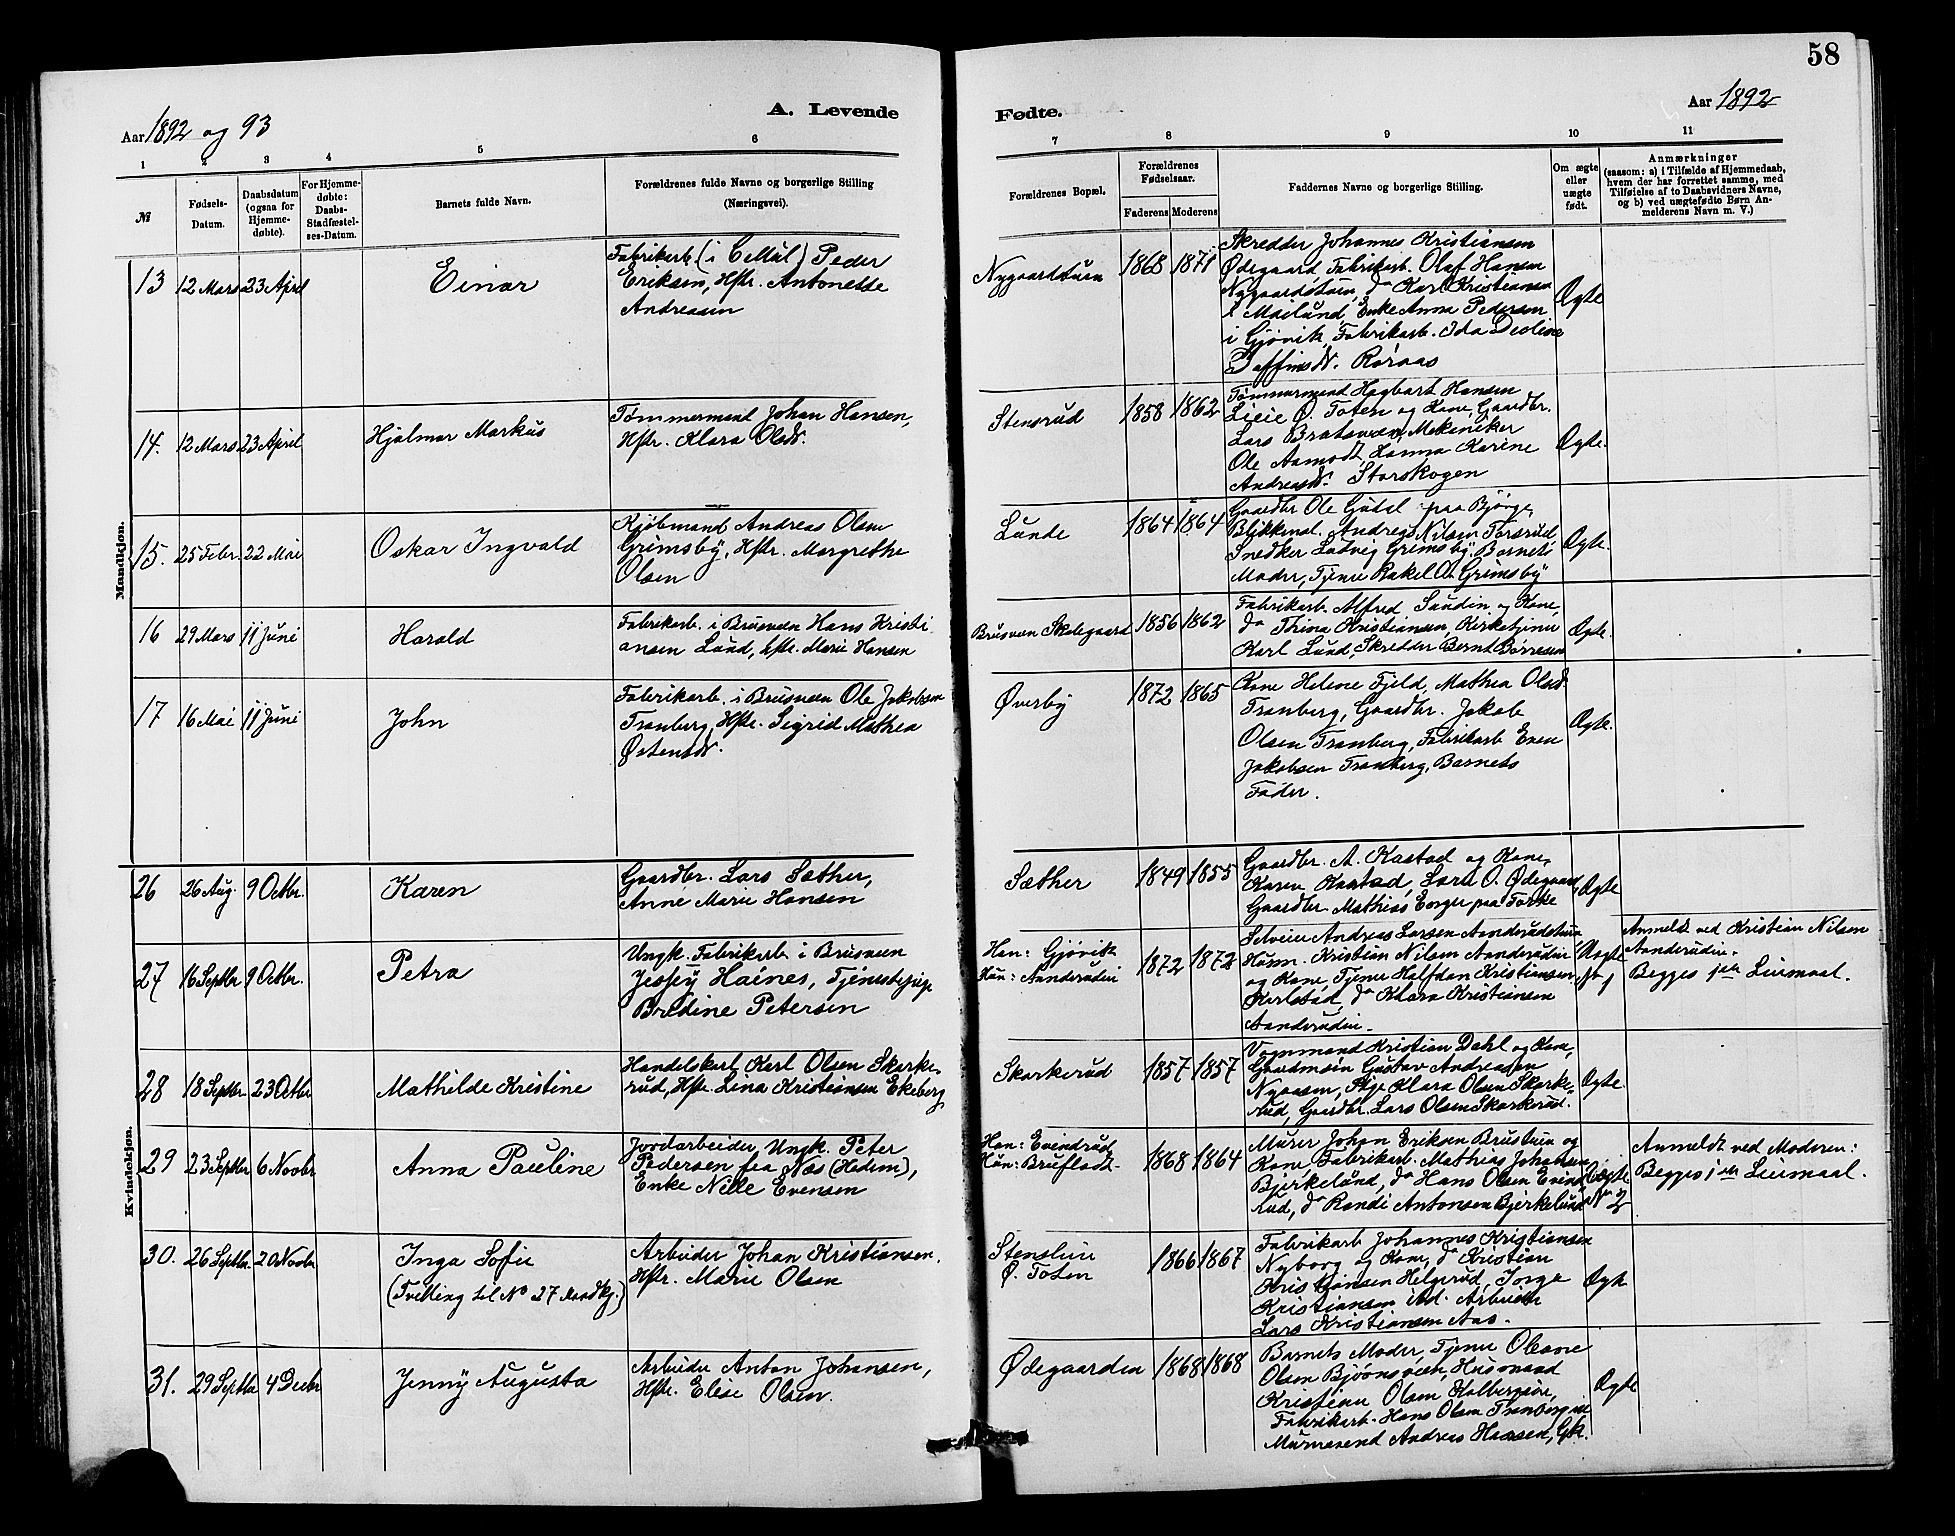 58
Aar 1892 og 93
A. Levende
Fødte.
Aar 1892
1 2 3 4 5 6 7 8 9 10 11
№
Fødsels-
Datum.
Daabsdatum
(ogsaa for
Hjemme-
døbte).
For Hjemme-
døbte:
Daabs-
Stadfæstel-
ses-Datum.
Barnets fulde Navn.
Forældrenes fulde Navne og borgerlige Stilling
(Næringsvei).
Forældrenes Bopæl.
Forældrenes
Fødselsaar.
Faderens Moderens
Faddernes Navne og borgerlige Stilling.
Om ægte
eller
uægte
født.
Anmærkninger
(saasom: a) i Tilfælde af Hjemmedaab,
hvem der har forrettet samme, med
Tilføielse af to Daabsvidners Navne,
og b) ved uægtefødte Børn An-
melderens Navn m. V.)
Mandkjøn.
13 12 Mars 23 April Einar
Fabrikarb (i Cellul) Peder
Eriksen, Hstr. Antonette
Andreasen
Nygaardstuen 1868 1871
Skredder Johannes Kristiansen
Ødegaard, Fabrikarb. Olaf Hansen
Nygaardstuen, do Karl Kristiansen
Mailund, Enke Anna Pedersen
i Gjøvik, Fabrikarb. Ida
Røraas
Ægte
14. 12 Mars 23 April Hjalmar Markus
Tømmermand Johan Hansen,
Hstr. Klara Olsdr.
Stensrud 1858 1862
Tømmermand Hagbart Hansen
Ø. Toten og Kone, Gaardbr.
Lars Bratsveen, Mekeniker
Ole Aamodt, Hanna Karine
Andreasdr. Storskogen
Ægte.
15. 25 Febr. 22 Mai Oskar Ingvald
Kjøbmand Andreas Olsen
Grimsby, Hstr. Margrethe
Olsen
Lunde 1864 1864
Gaardbr Ole paa Bjørge,
Andreas Nilsen
Snedker Ludvig Grimsby, Barnets
Moder, Tjener Rakel O. Grimsby
Ægte.
16 29 Mars 11 Juni Harald
Fabrikarb. i Brusveen Hans Kristi
ansen Lund, Hstr. Marie Hansen
Brusveen Skolegaard 1856 1862
Fabrikarb. Alfred Sundin og Kone,
do Thina Kristiansen, Kirketjener
Karl Lund, Skredder Bernt Børresen
Ægte.
17 16 Mai 11 Juni John
Fabrikarb. i Brusveen Ole Jakobsen
Tranberg, Hstr. Sigrid Mathea
Østensdr.
Øverby 1872 1865
Kone Helene Fjeld, Mathea Olsdr
Tranberg, Gaardbr. Jakob
Olsen Tranberg, Fabrikarb Even
Jakobsen Tranberg, Barnets
Fader.
Ægte.
Kvindekjøn.
26 26 Aug. 9 Octbr. Karen
Gaardbr. Lars Sæther,
Anne Marie Hansen
Sæther 1849 1855
Gaardbr. A. Kastad og Kone,
Karen Kastad, Lars O. Ødegaard,
Gaardbr. Mathias
Ægte
27 16 Septbr 9 Octbr. Petra
Ungk. Fabrikarb i Brusveen
Haines, Tjenestepige
Bredine Petersen
Han: Gjøvik
Hun: Aanderudin
1872 1872
Selveier Andreas Larsen Aanderudstuen
Husm. Kristian Nilsen Aanderudin
og Kone, Tjener Halfdan Kristiansen
do Klara Kristiansen
Aanderudin.
Uægte
№ 1
Anmeldt ved Kristian Nilsen
Aanderudin.
Begges 1ste Leiermaal.
28 18 Septbr 23 Octbr Mathilde Kristine
Handelskarl Karl Olsen Skarke-
rud, Hstr. Lina Kristiansen Ekeberg
Skarkerud 1857 1857
Vognmand Kristian Dahl og Kone,
Gaardmand Gustav Andreasen
Nyaasen, Pige Klara Olsen Skarke-
rud, Gaardbr. Lars Olsen Skarkerud.
Ægte.
29 23 Septbr 6 Novbr Anna Pauline
Jordarbeider, Ungk. Peter
Pedersen fra Næs (Hedem),
Enke Nille Evensen
Han: Evindrud
Hun: Bruflodt
1868 1864
Murer Johan Eriksen Brustuen og
Kone, Fabrikarb. Mathias Johansen
Bjerkelund, do Hans Olsen Evind
rud, do Randi Antonsen Bjerkelund
Uægte
№ 2
Anmeldt ved Moderen:
Begges 1ste Leiermaal.
30. 26 Septbr 20 Novbr Inga Sofie
(Tvilling til No 27 Mandkj.)
Arbeider Johan Kristiansen.
Hstr. Marie Olsen
Ø. Toten
1866 1867
Fabrikarb Johannes Kristiansen
Nyborg og Kone, do Kristian
Kristiansen Helgerud, Jorge
Kristiansen ibd. Arbeider
Lars Kristiansen Aas.
Ægte
31. 29 Septbr 4 Decbr Jenny Augusta
Arbeider Anton Johansen,
Hstr. Elise Olsen.
Ødegaarden 1868 1868
Barnets Moder, Tjener Oleane
Olsen Bjørnsveen, Husmand
Kristian Olsen
Fabrikarb. Hans Olsen Tranberg
Murmesend Andreas Hansen, Gk.
Ægte